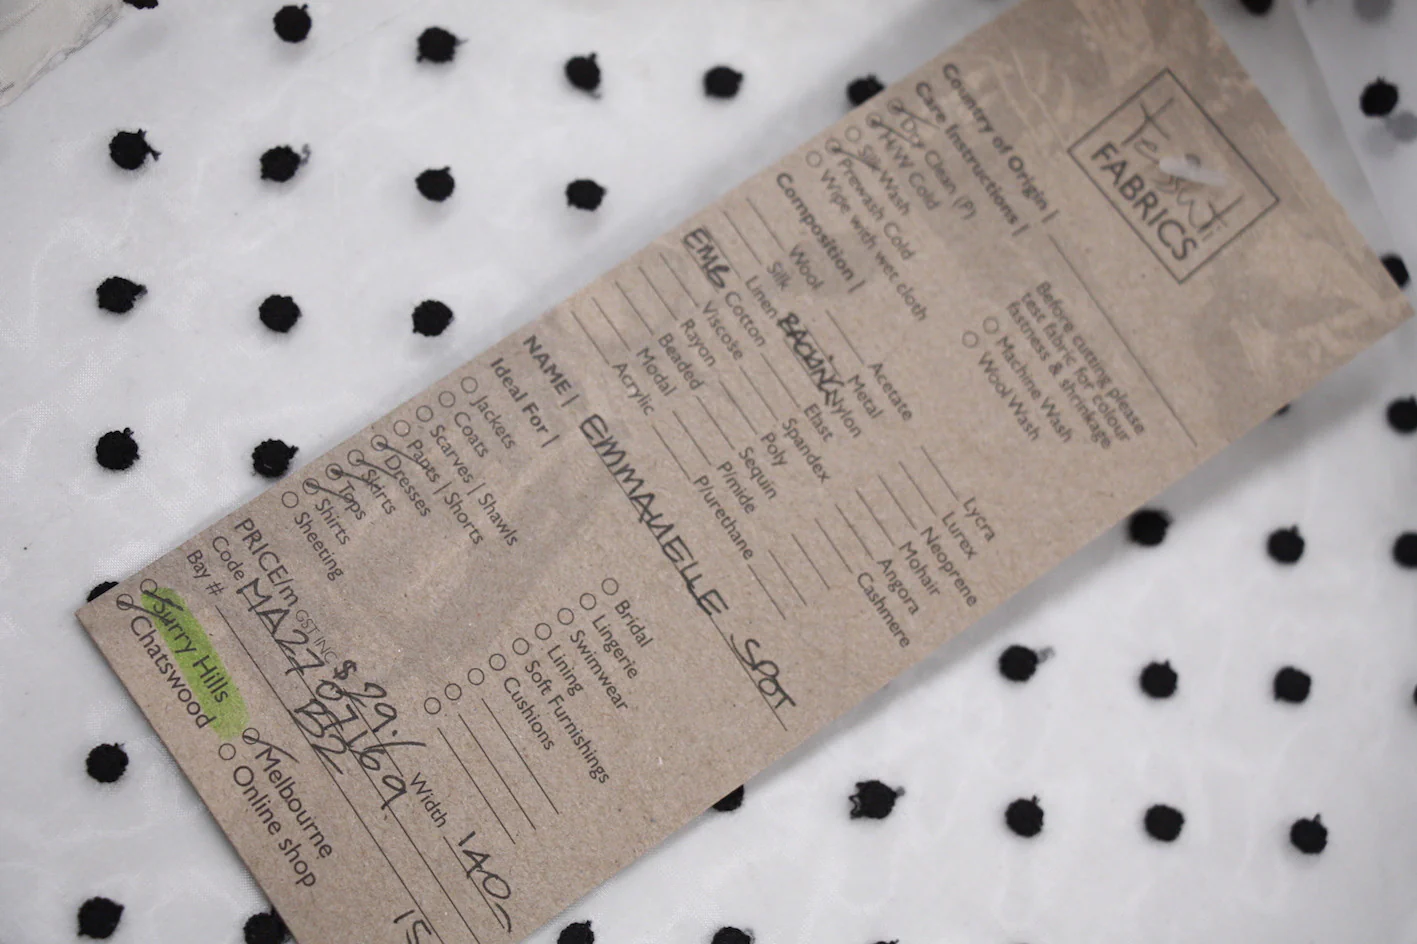 FABRICS
Country of Origin |
Care Instructions |
Dry Clean (P)
H/W Cold
Silk Wash
Prewash Cold
Wipe with wet cloth
Before cutting please
test fabric for colour
fastness & shrinkage
Machine Wash
Wool Wash
Composition |
Wool
Silk
Linen
EMB Cotton
Viscose
Rayon
Beaded
Modal
Acrylic
BACKING
Acetate
Metal
Nylon
Elast
Spandex
Poly
Sequin
P/mide
P/urethane
Lycra
Lurex
Neoprene
Mohair
Angora
Cashmere
NAME | EMMANUELLE SPOT
Ideal For |
Jackets
Coats
Scarves | Shawls
Pants | Shorts
Dresses
Skirts
Tops
Shirts
Sheeting
Bridal
Lingerie
Swimwear
Lining
Soft Furnishings
Cushions
PRICE/m GST INC $29.- Width 140
Code MA27 07169
Bay # B2 15
Surry Hills
Chatswood
Melbourne
Online shop